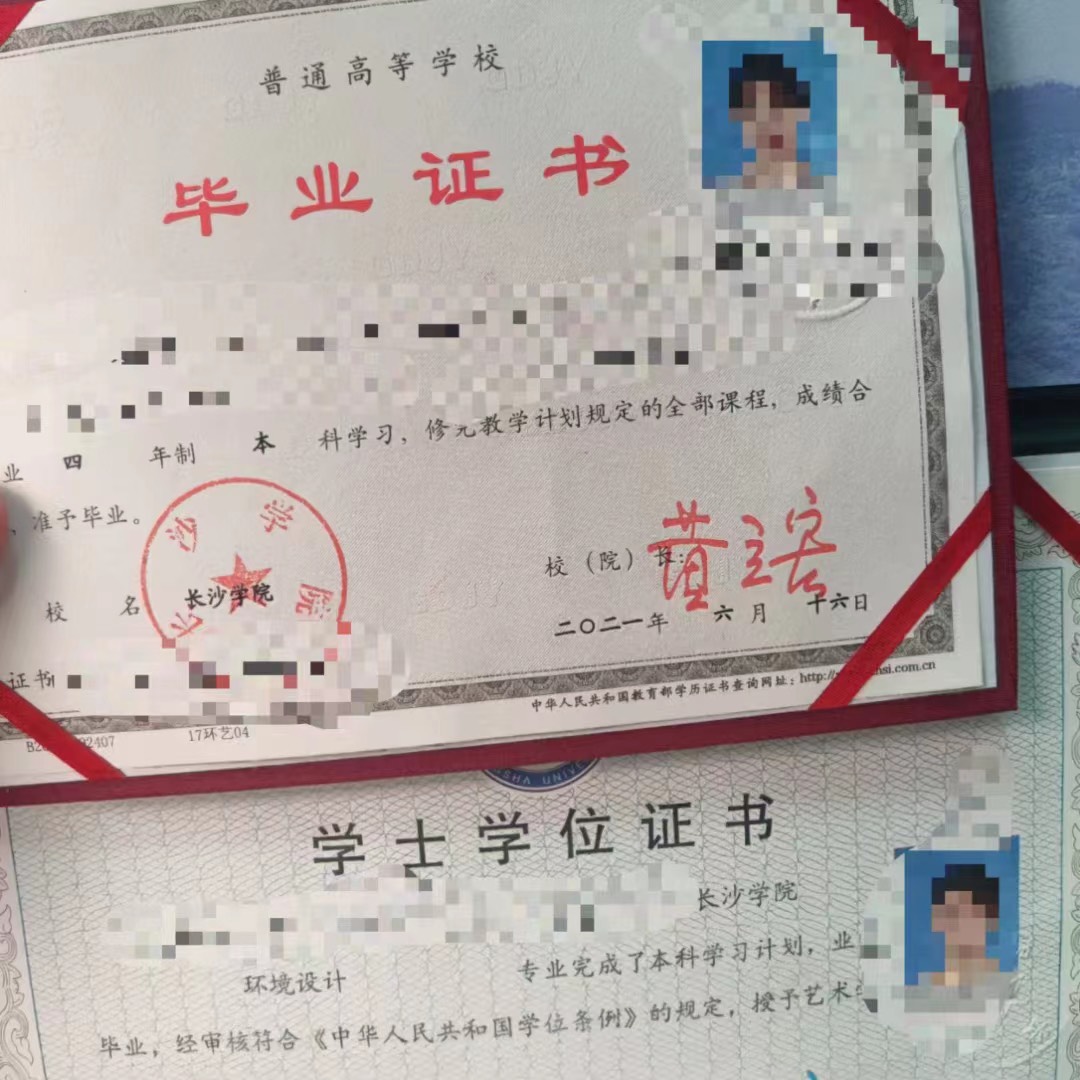 普通高等学校
毕业证书
业 四 年制 本 科学习，修完教学计划规定的全部课程，成绩合
，准予毕业。
沙学院
校（院）长：
校 名 长沙学院
二〇二一年 六月 十六日
证书
中华人民共和国教育部学历证书查询网址：http://
si.com.cn
2407
17环艺04
SHA UNIVE
学士学位证书
长沙学院
环境设计 专业完成了本科学习计划，业
毕业，经审核符合《中华人民共和国学位条例》的规定，授予艺术